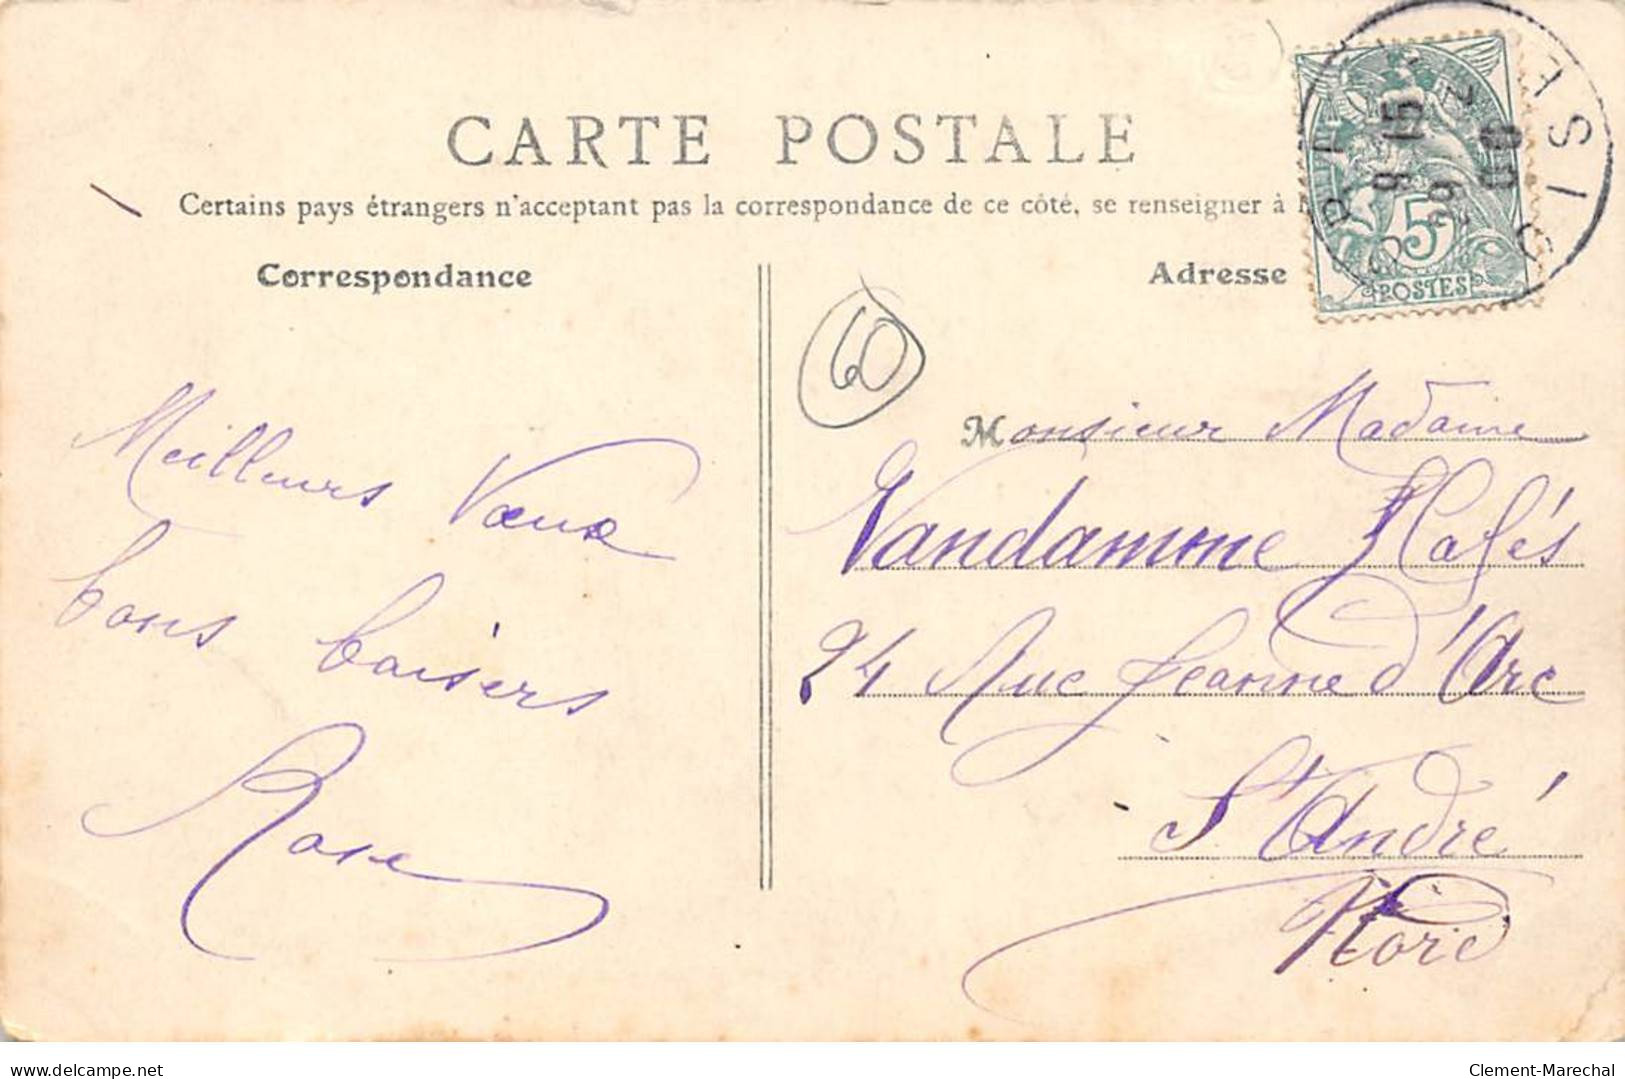 CARTE POSTALE
Certains pays étrangers n'acceptant pas la correspondance de ce côté, se renseigner à
Correspondance
Adresse
5
POSTES
CREIL
OISE
60
Meilleurs Vœux
bons baisers
Rose
Monsieur Madame
Vandamme Cafés
24 Rue Jeanne d'Arc
St André
Nord
Clement-Marechal